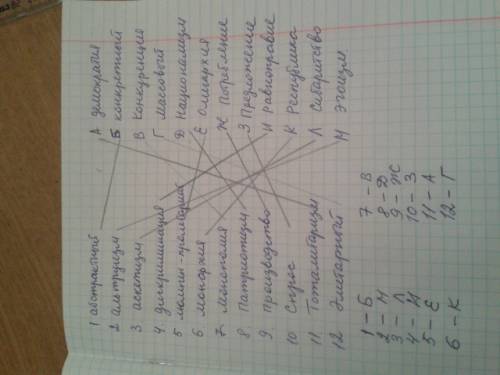 1 абстрактный А демократия
2 альтруизм Б конкретный
3 аскетизм В Конкуренция
4 Дискриминация Г Массовый
5 люмпен-пролетарии Д Национализм
6 монархия Е Олигархия
7 Монополия Ж Потребление
8 Патриотизм З Предложение
9 Производство И Равноправие
10 Спрос К Республика
11 Тоталитаризм Л Сибаритство
12 Элитарный М Эгоизм
1 – Б 7 – В
2 – М 8 – Д
3 – Л 9 – Ж
4 – И 10 – З
5 – Е 11 – А
6 – К 12 – Г